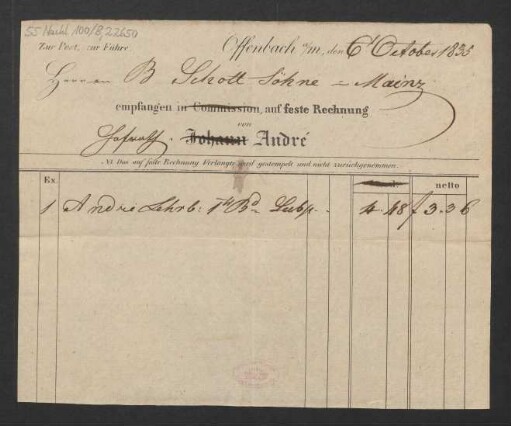 55 Nachl 100/B,22650
Zur Post, zur Fuhre
Offenbach a/m, den 6t October 1835
Herren B Schott Söhne in Mainz
empfangen in Commission, auf feste Rechnung
von
Hofrath Johann André
NB Das auf feste Rechnung Verlangte wird gestempelt und nicht zurückgenommen.
Ex. netto
1 André Lehrb: 1tr Bd Subsp. 4. 48 f 3. 36